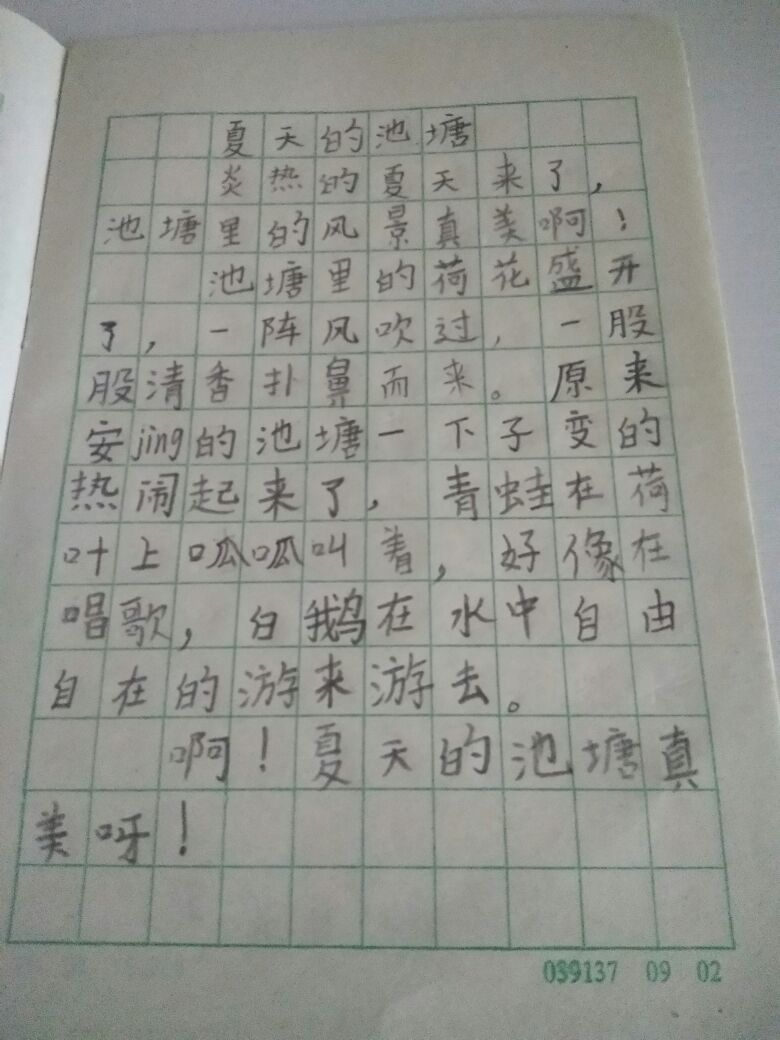 夏天的池塘
炎热的夏天来了，
池塘里的风景真美啊！
池塘里的荷花盛开
了，一阵风吹过，一股
股清香扑鼻而来。原来
安jing的池塘一下子变的
热闹起来了，青蛙在荷
叶上呱呱叫着，好像在
唱歌，白鹅在水中自由
自在的游来游去。
啊！夏天的池塘真
美呀！
039137 09 02